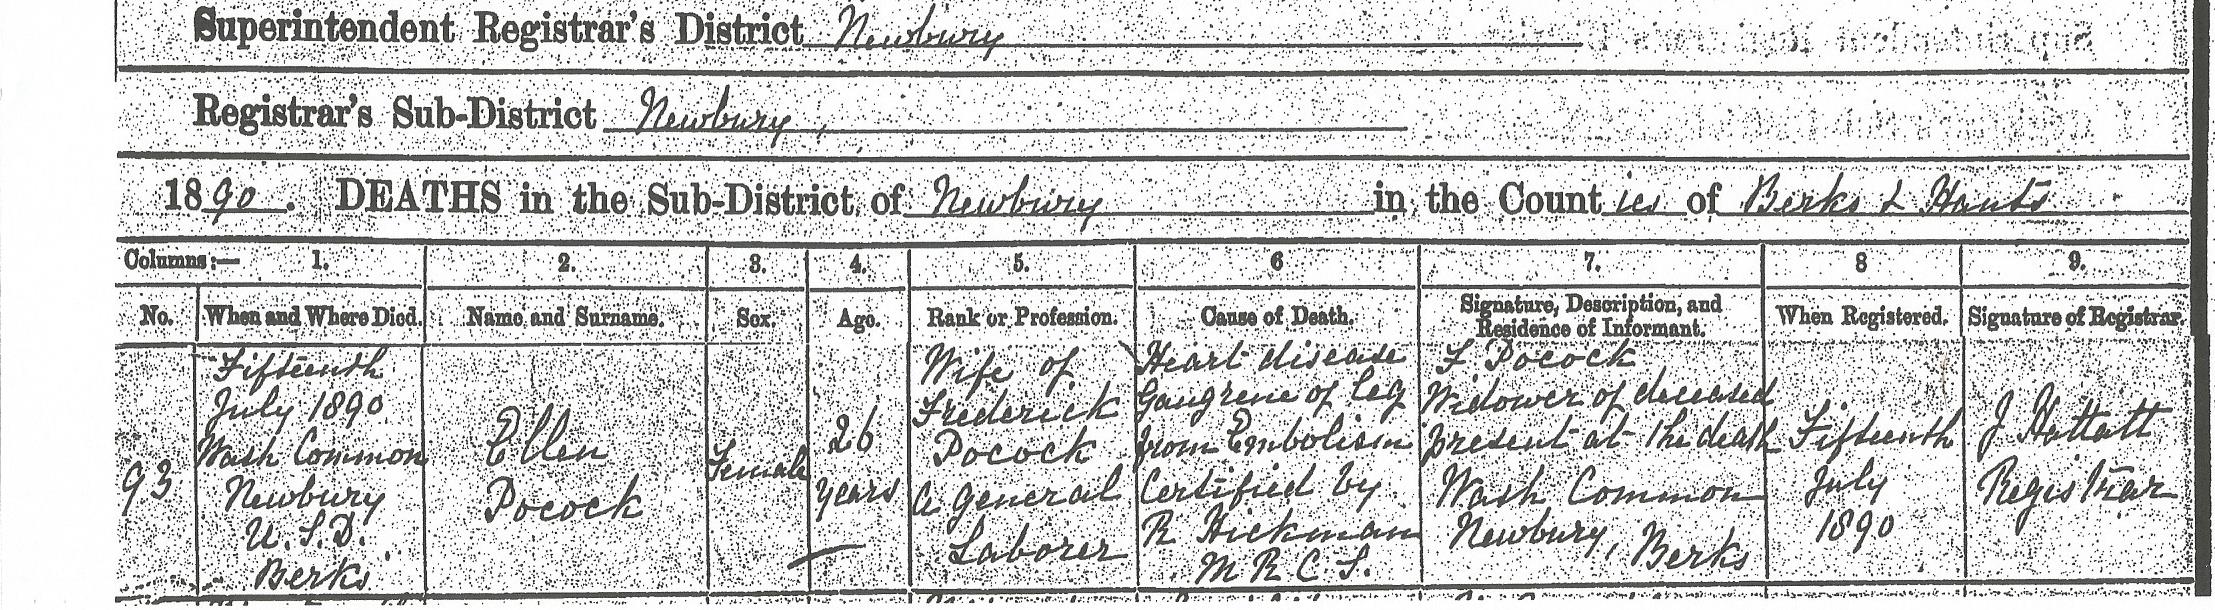 Superintendent Registrar's District Newbury
Registrar's Sub-District Newbury
1890. DEATHS in the Sub-District of Newbury in the Counties of Berks & Hants
Columns:— 1. 2. 3. 4. 5. 6 7. 8 9.
No. When and Where Died. Name and Surname. Sex. Age. Rank or Profession. Cause of Death. Signature, Description, and Residence of Informant. When Registered. Signature of Registrar.
93
Fifteenth
July 1890
Wash Common
Newbury
U.S.D.
Berks
Ellen
Pocock
Female
26
years
Wife of
Frederick
Pocock
a General
Laborer
Heart disease
Gangrene of leg
from Embolism
Certified by
R Hickman
M R C S.
F Pocock
Widower of deceased
present at the death
Wash Common
Newbury, Berks
Fifteenth
July
1890
J Hattatt
Registrar